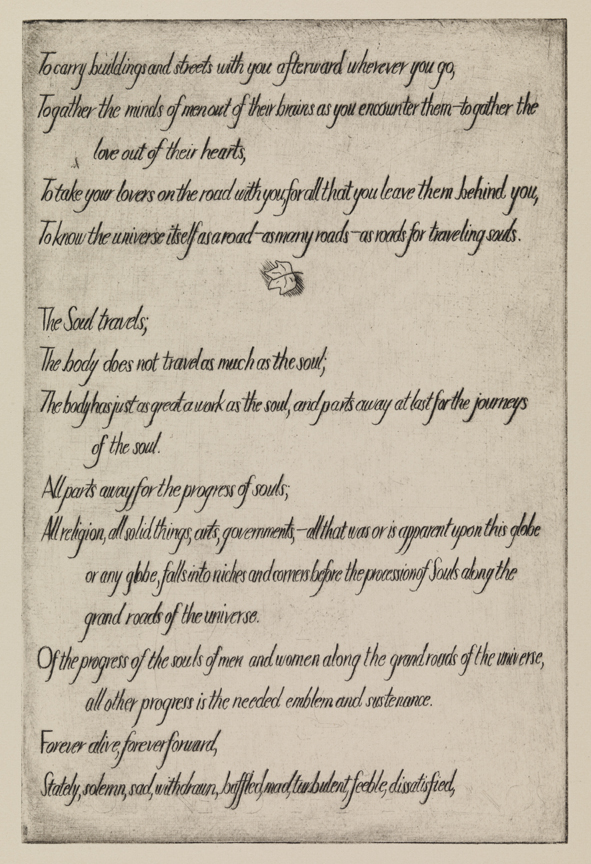 To carry buildings and streets with you afterward wherever you go,
To gather the minds of men out of their brains as you encounter them—to gather the
love out of their hearts,
To take your lovers on the road with you, for all that you leave them behind you,
To know the universe itself as a road—as many roads—as roads for traveling souls.
The Soul travels;
The body does not travel as much as the soul;
The body has just as great a work as the soul, and parts away at last for the journeys
of the soul.
All parts away for the progress of souls;
All religion, all solid things, arts, governments,—all that was or is apparent upon this globe
or any globe, falls into niches and corners before the procession of Souls along the
grand roads of the universe.
Of the progress of the souls of men and women along the grand roads of the universe,
all other progress is the needed emblem and sustenance.
Forever alive, forever forward,
Stately, solemn, sad, withdrawn, baffled, mad, turbulent, feeble, dissatisfied,